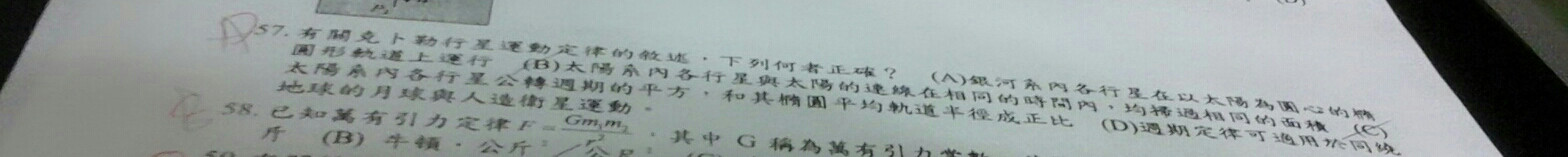 57. 有關克卜勒行星運動定律的敘述，下列何者正確？ (A)銀河系內各行星在以太陽為圓心的橢
圓形軌道上運行 (B)太陽系內各行星與太陽的連線在相同的時間內，均掃過相同的面積 (C)
太陽系內各行星公轉週期的平方，和其橢圓平均軌道半徑成正比 (D)週期定律可適用於同繞
地球的月球與人造衛星運動。
58. 已知萬有引力定律 F = Gm₁m₂/r²，其中 G 稱為萬有引力常數
斤 (B) 牛頓．公斤²／公尺²